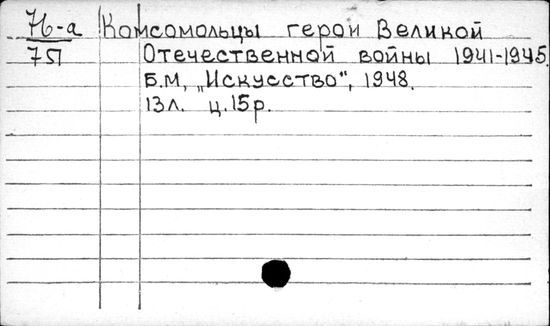 76-а Комсомольцы герои Великой
7П Отечественной войны 1941-1945.
Б.М, „Искусство", 1948.
13л. ц.15р.